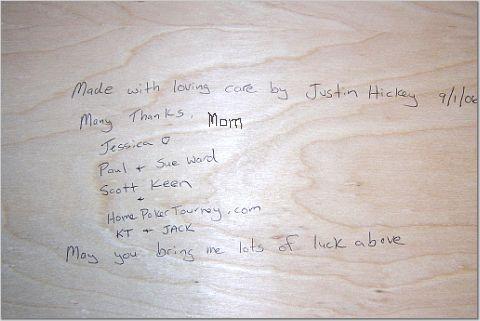 Made with loving care by Justin Hickey 9/1/06
Many Thanks, Mom
Jessica ♡
Paul + Sue Ward
Scott Keen
+
HomePokerTourney.com
KT + JACK
May you bring me lots of luck above